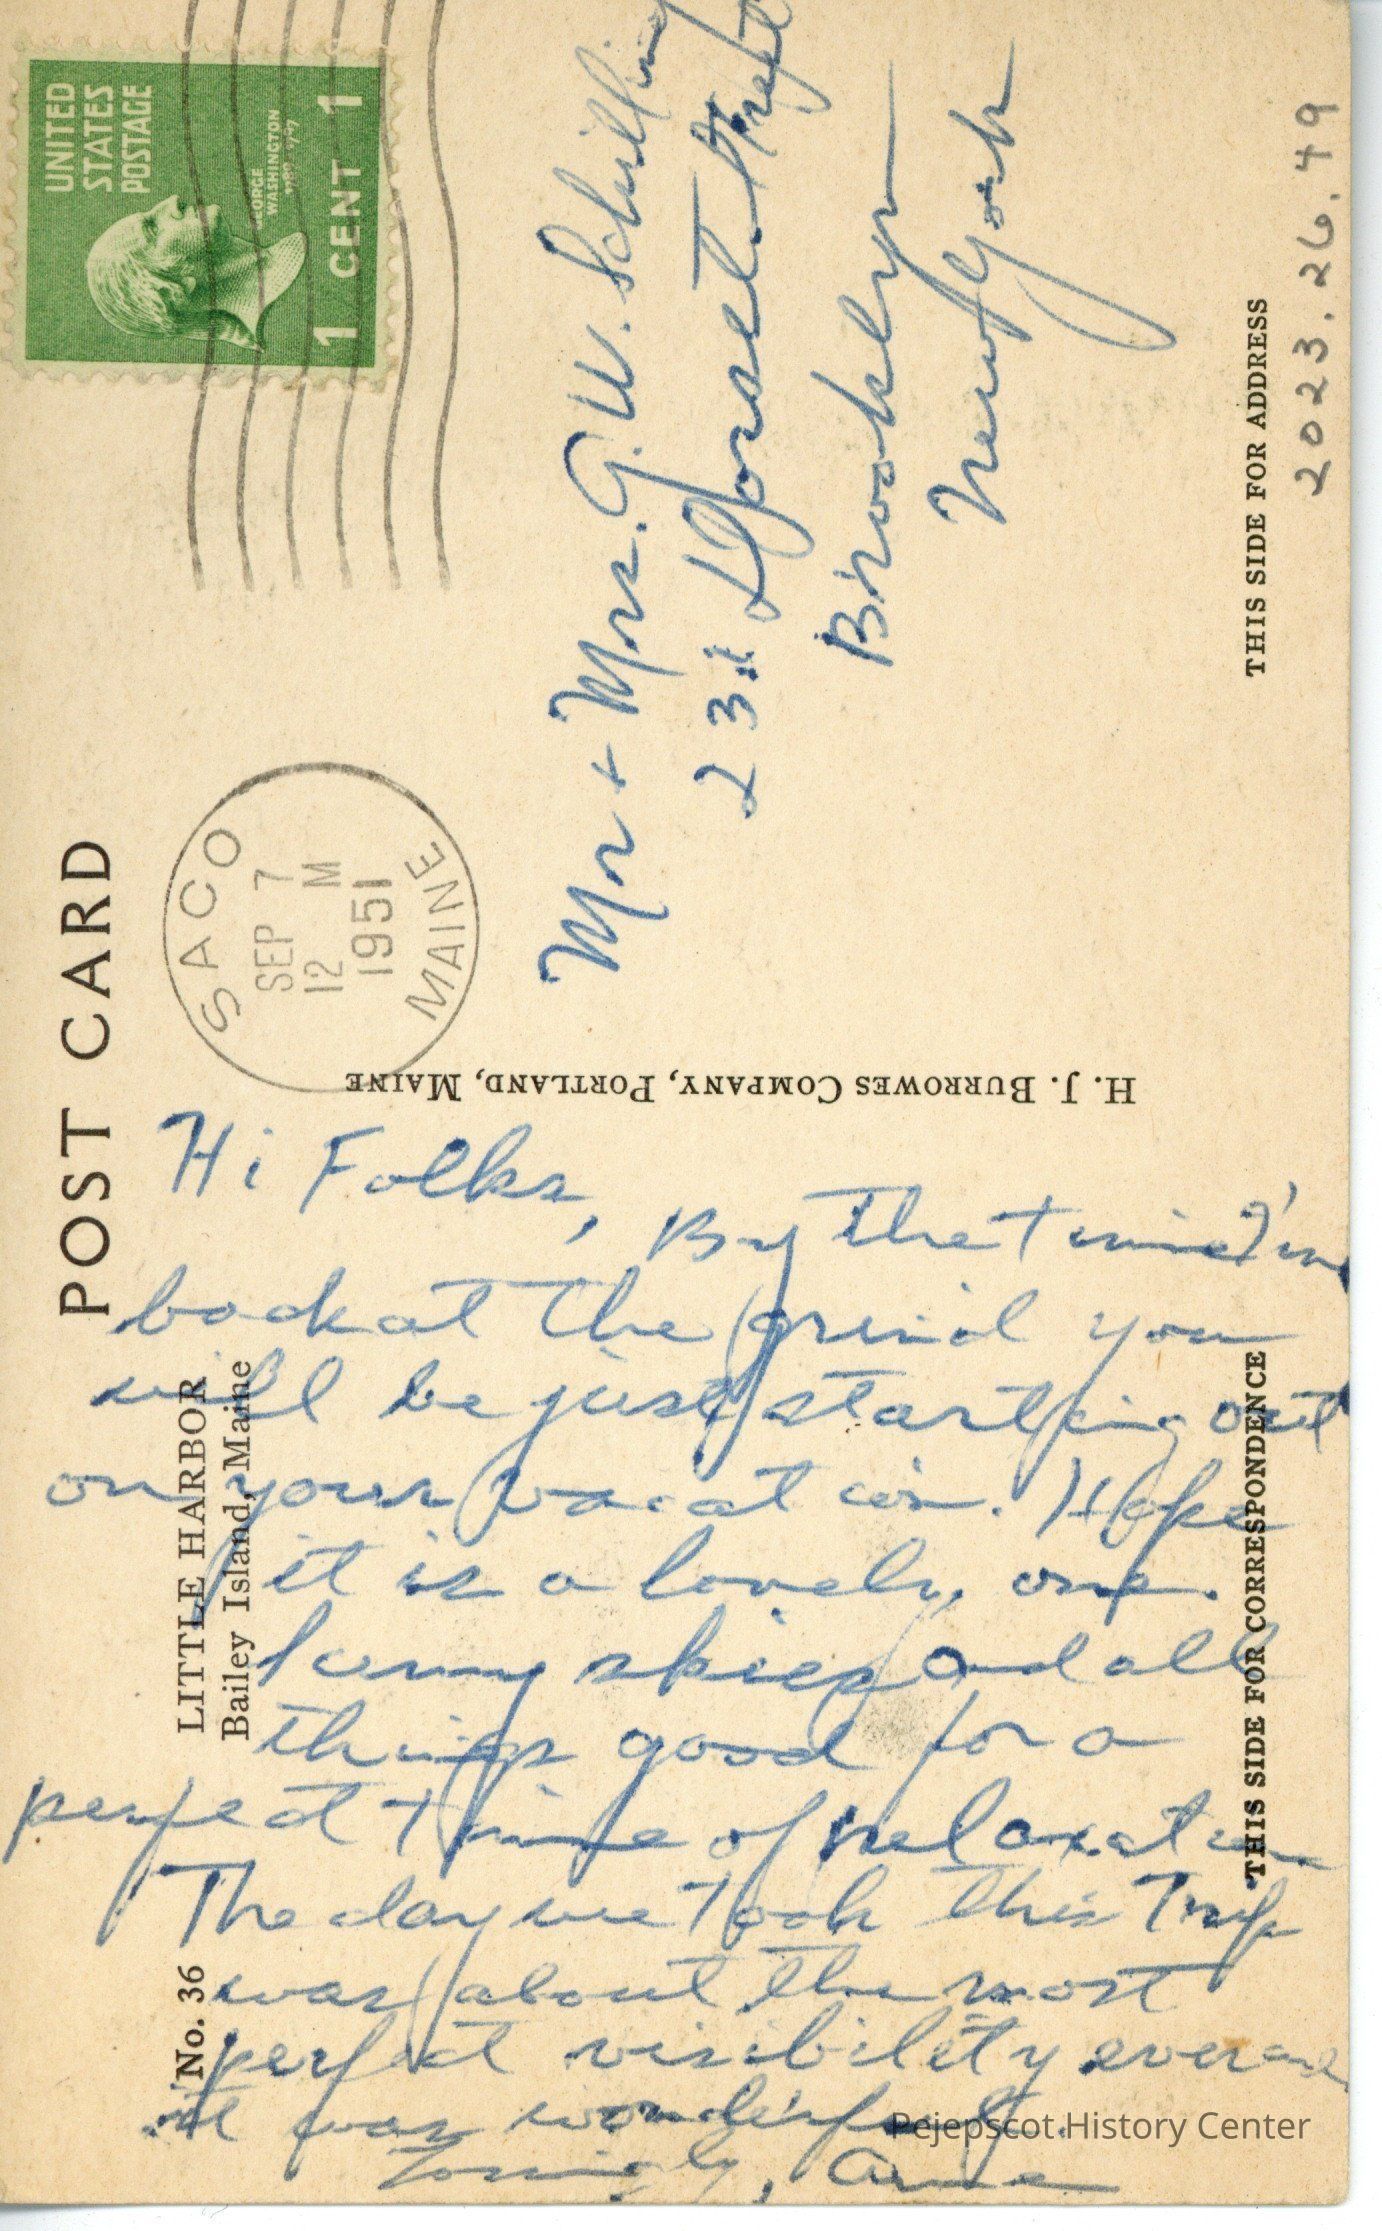 POST CARD
UNITED
STATES
POSTAGE
GEORGE
WASHINGTON
1 CENT 1
SACO
SEP 7
12 M
1951
MAINE
Mr + Mrs. G. W. Schilling
Dorset Street
Brooklyn
New York
THIS SIDE FOR ADDRESS
2023.26.49
H. J. BURROWES COMPANY, PORTLAND, MAINE
LITTLE HARBOR
Bailey Island, Maine
No. 36
THIS SIDE FOR CORRESPONDENCE
Hi Folks,
By the time I'm
back at the grind you
will be just starting out
on your vacation. Hope
it is a lovely one.
Sunny skies and all
things good for a
perfect time of relaxation
The day we took this Trip
was about the most
perfect visibility ever and
it was wonderful.
Lovingly, Anne
Pejepscot History Center